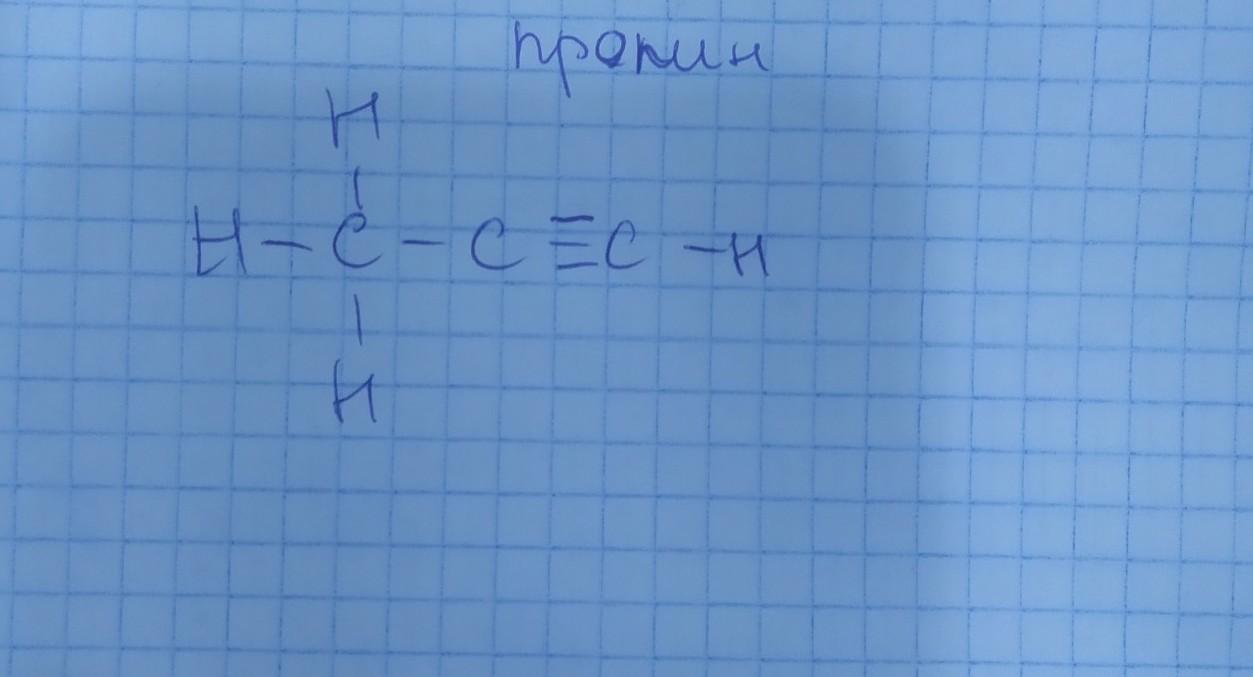 пропин
H
|
H – C – C ≡ C – H
|
H